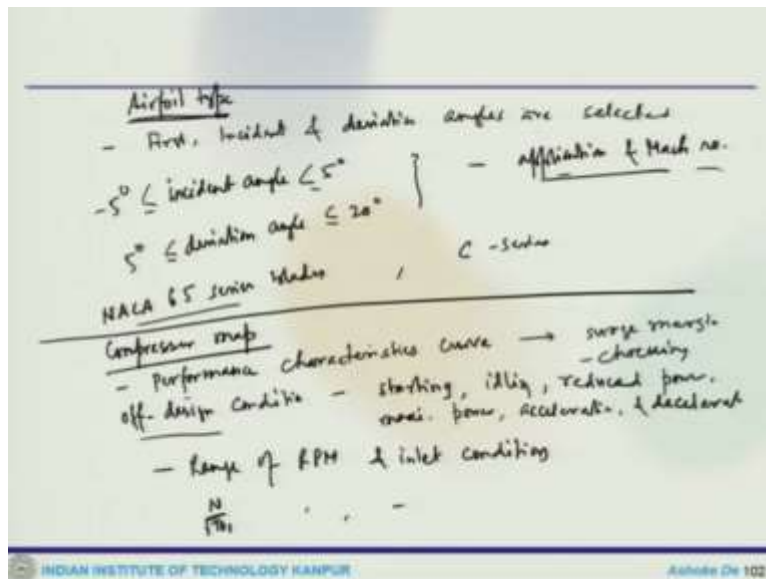 Airfoil type
- First, Incident & deviation angles are selected
-5° ≤ incident angle ≤ 5° } - application & Mach no.
5° ≤ deviation angle ≤ 20°
NACA 65 series blades , C-series
Compressor map
- Performance characteristics curve → surge margin
- chocking
off-design condition - starting, idling, reduced power,
maxi. power, acceleration, & decelerat
- Range of RPM & inlet condition
INDIAN INSTITUTE OF TECHNOLOGY KANPUR
Ashoke De 102